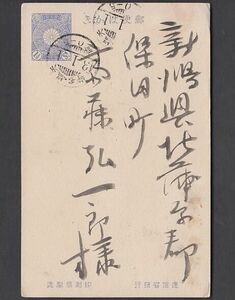 郵便はがき
新潟縣北蒲原郡
保田町
斎藤弘一郎様
逓信省発行
印刷局製造